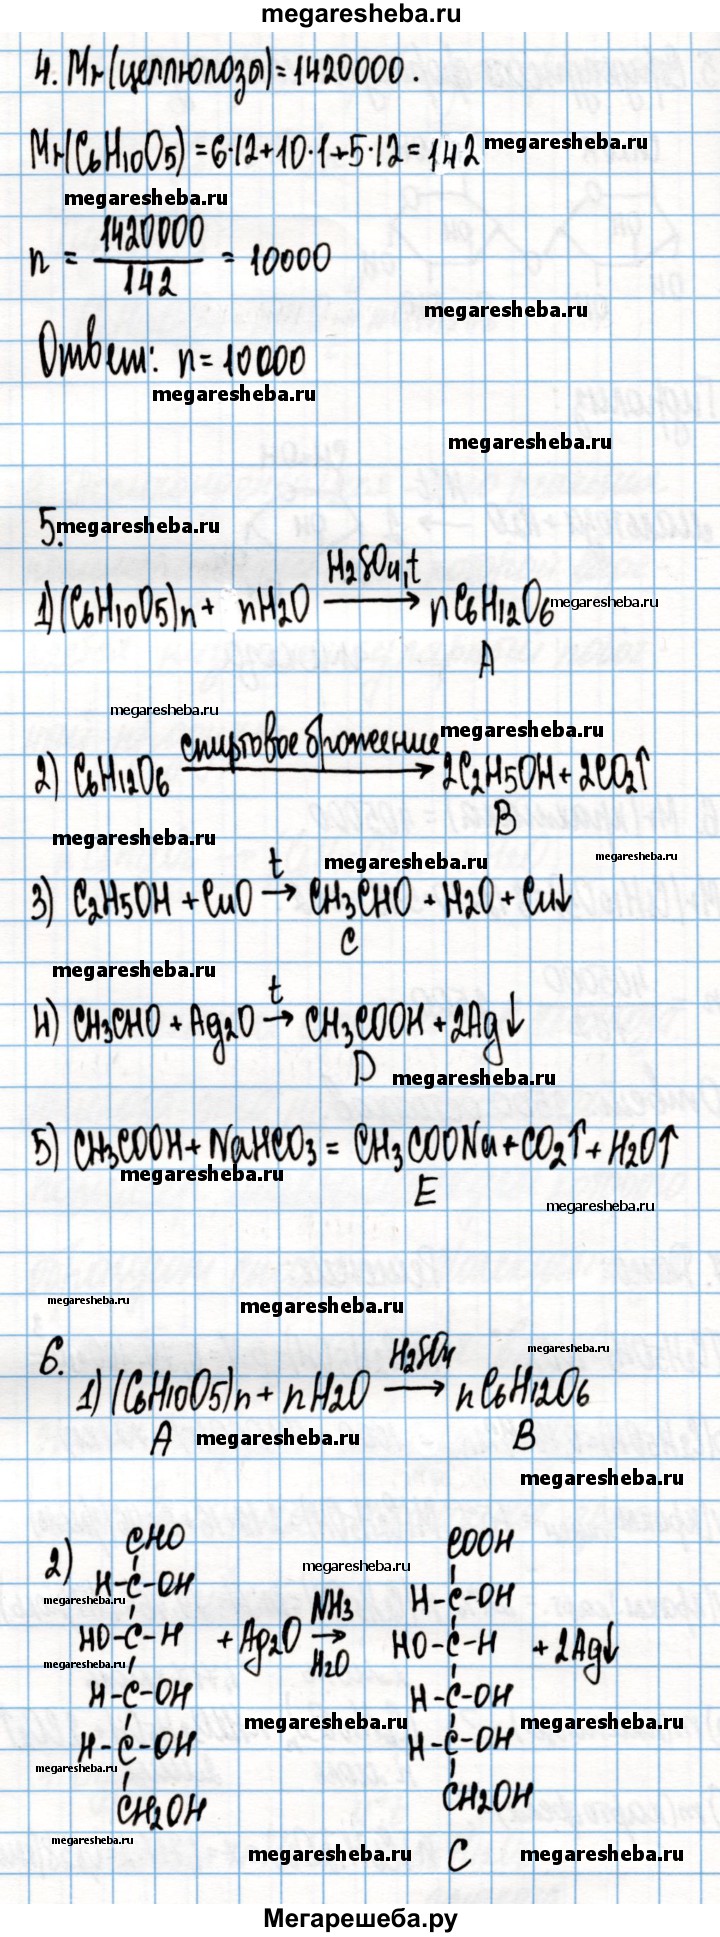 megaresheba.ru
4. Mr(целлюлозы)=1420000.
Mr(C6H10O5)=6·12+10·1+5·12=142 megaresheba.ru
megaresheba.ru
n = 1420000/142 = 10000
megaresheba.ru
Ответ: n=10000
megaresheba.ru
megaresheba.ru
5. megaresheba.ru
1) (C6H10O5)n + nH2O H2SO4,t → nC6H12O6 megaresheba.ru
A
megaresheba.ru
2) C6H12O6 спиртовое брожение → 2C2H5OH + 2CO2↑ megaresheba.ru
B
megaresheba.ru
megaresheba.ru megaresheba.ru
3) C2H5OH + CuO t → CH3CHO + H2O + Cu↓
C
megaresheba.ru
4) CH3CHO + Ag2O t → CH3COOH + 2Ag↓
D megaresheba.ru
5) CH3COOH + NaHCO3 = CH3COONa + CO2↑ + H2O↑
megaresheba.ru
E megaresheba.ru
megaresheba.ru megaresheba.ru
6. megaresheba.ru
1) (C6H10O5)n + nH2O H2SO4 → nC6H12O6
A megaresheba.ru B
megaresheba.ru
2) CHO COOH
megaresheba.ru
H-C-OH H-C-OH
megaresheba.ru
HO-C-H + Ag2O NH3 → H2O HO-C-H + 2Ag↓
megaresheba.ru
H-C-OH H-C-OH
megaresheba.ru megaresheba.ru
H-C-OH H-C-OH
megaresheba.ru
CH2OH CH2OH
megaresheba.ru
megaresheba.ru C megaresheba.ru
Мегарешеба.ру